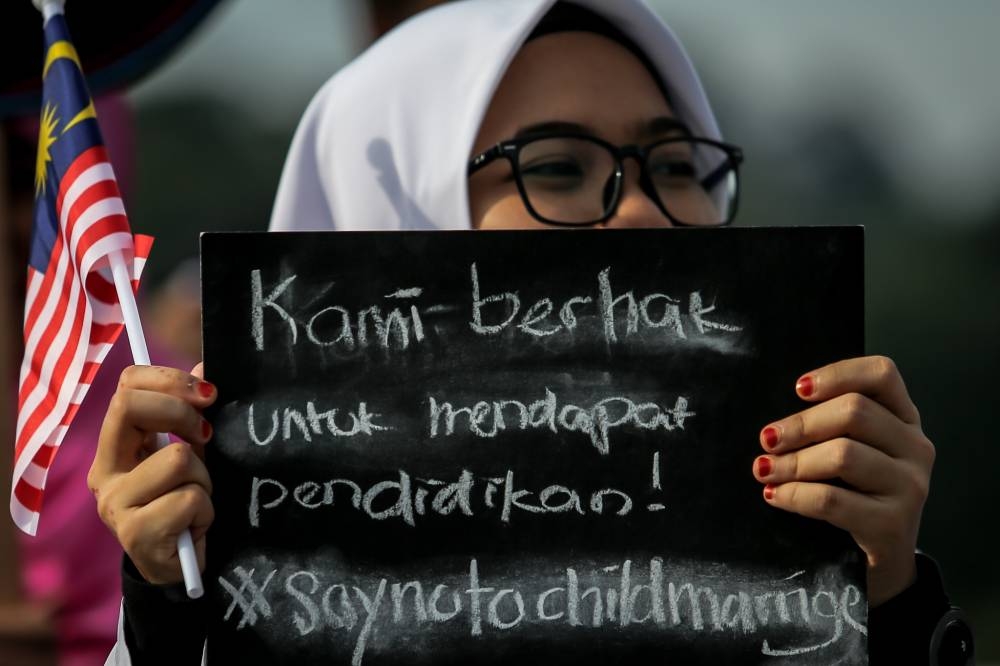 Kami berhak
untuk mendapat
pendidikan!
#Saynotochildmarriage